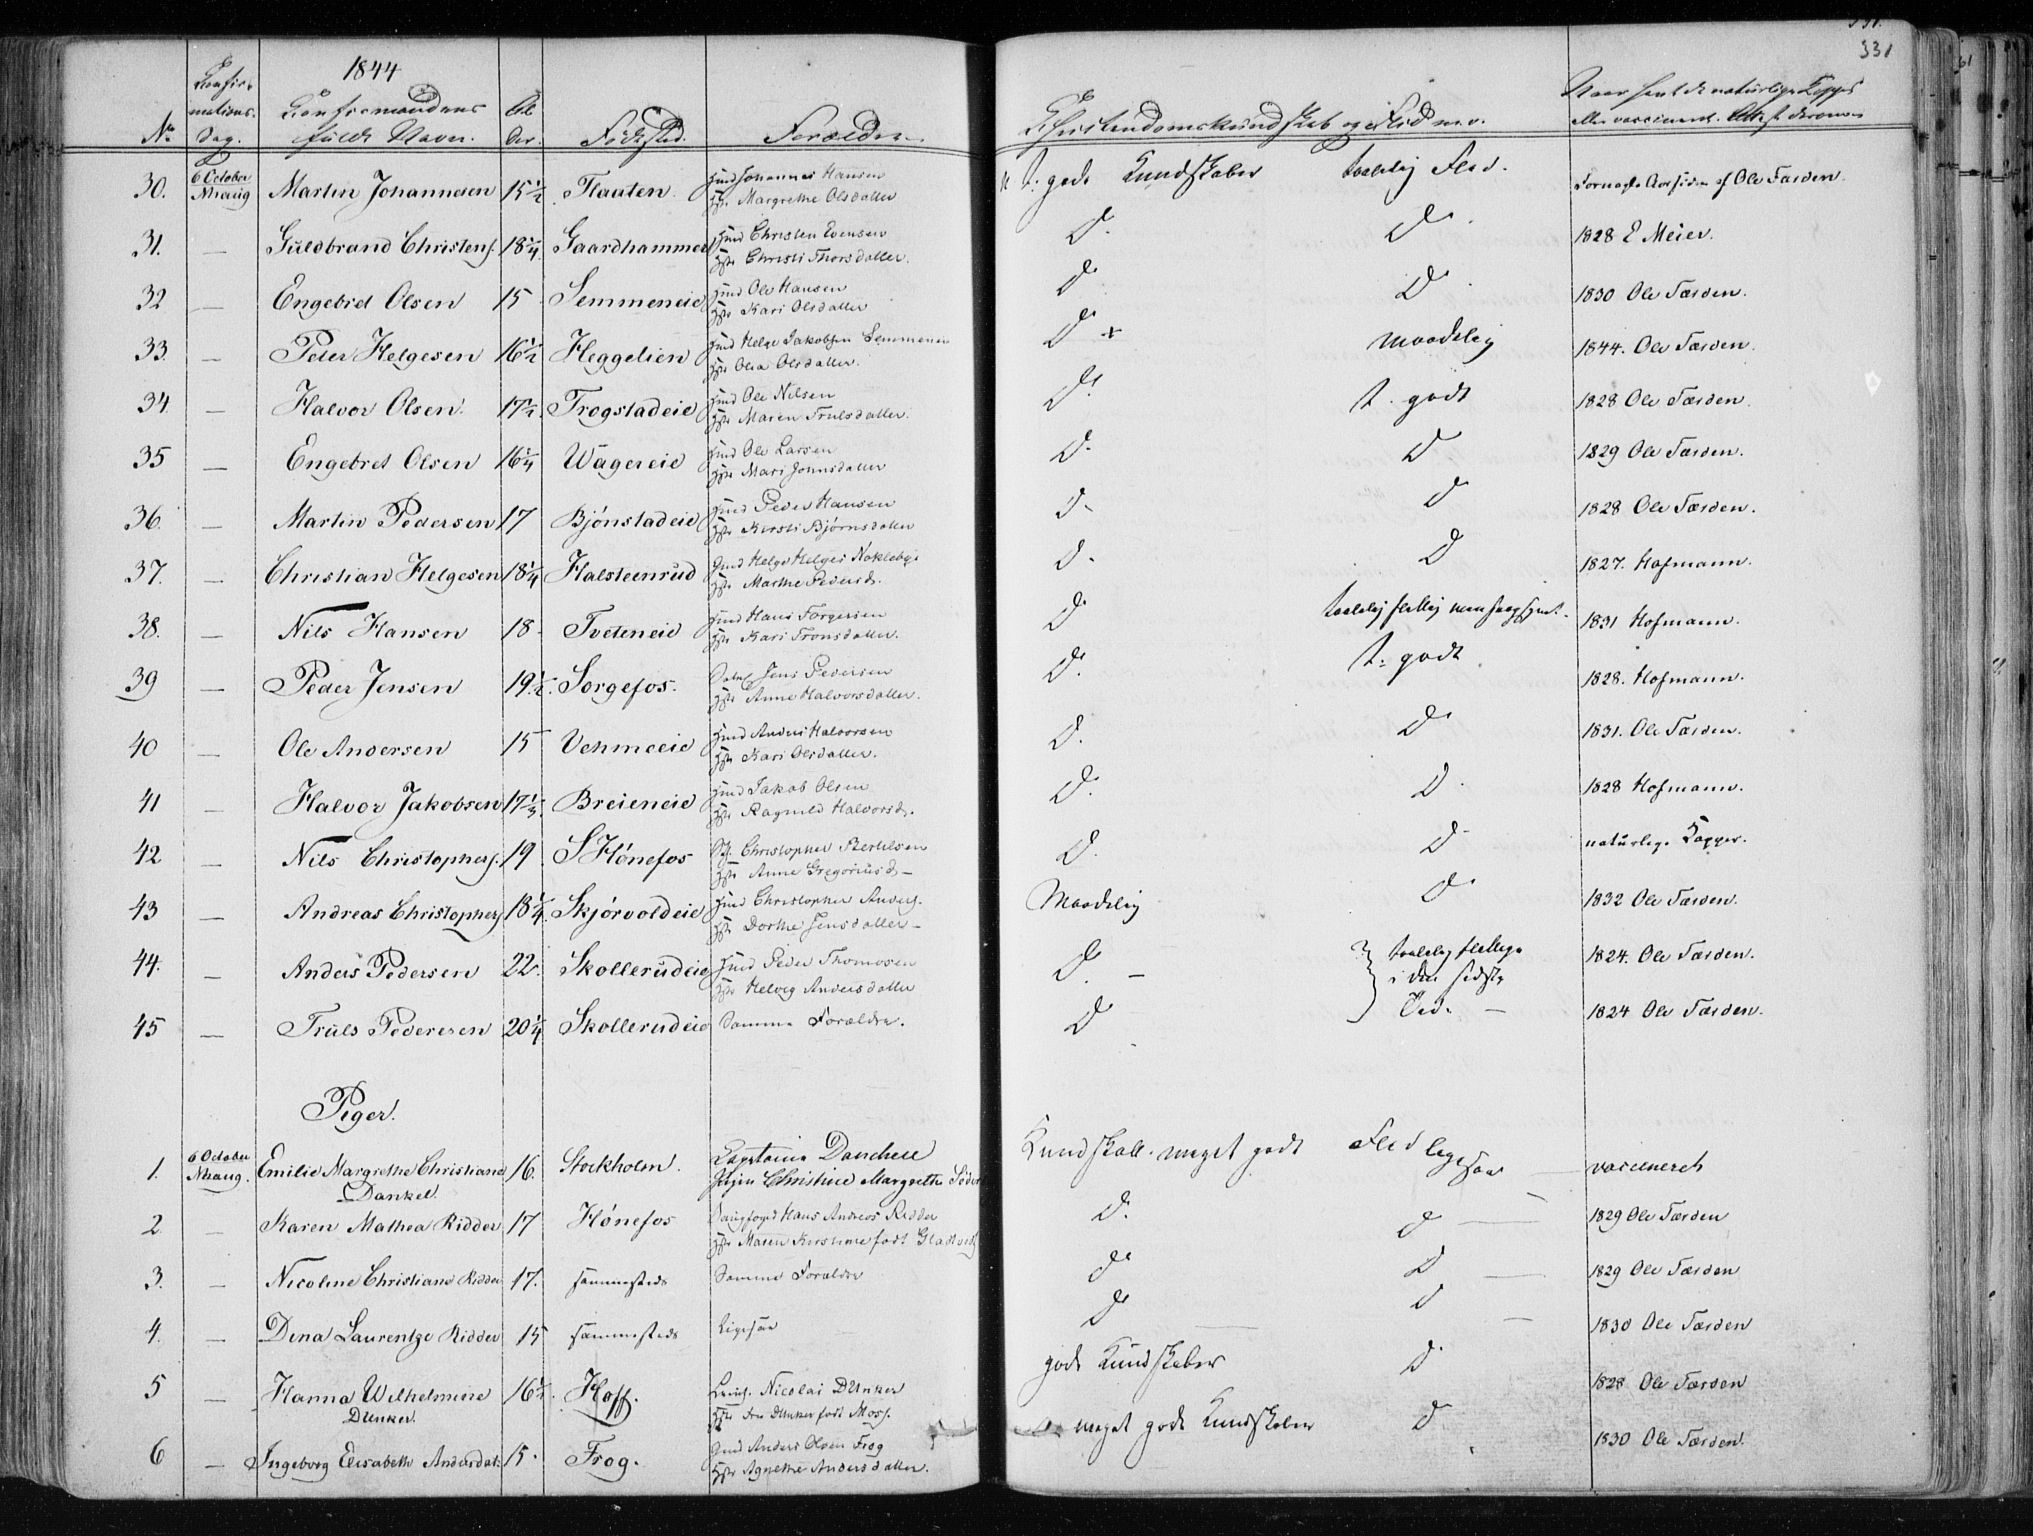 331.
331
1844
No
Confir-
mations-
Dag.
Confirmandens
fulde Navn.
Al
der.
Födested.
Forældre.
Christendomskundskab og Flid m.v.
Naar havt de naturlige Kopper
eller vaccineret. Attest derom
30. 6 October Nhaug Martin Johannesen 15½ Flaaten. Hmd Johannes Hansen
Hst Margrethe Olsdatter
t. gode Kundskaber taalelig Flid. Ole Færden.
31. — Guldbrand Christens. 18¼ Gaardhammer Hmd Christen Evensen
Hst Christi Thorsdatter.
D. D. 1828 E Meier.
32 — Engebret Olsen 15 Semmeneie Hmd Ole Hansen
Hst Kari Olsdatter
D D 1830 Ole Færden.
33. — Peder Helgesen 16½ Heggelien Hmd Helge Jakobsen Semmenei
Hst Olea Olsdatter.
D + Maadelig 1844. Ole Færden.
34. — Halvor Olsen. 17½. Trogstadeie Hmd Ole Nilsen
Hst Maren Trulsdatter.
D. t. godt 1828 Ole Færden.
35 — Engebret Olsen 16¼ Wågereie Hmd Ole Larsen
Hst Mari Johnsdatter
D. D 1829 Ole Færden.
36. — Martin Pedersen 17 Bjønstadeie Hmd Peder Hansen
Hst Kirsti Bjørnsdatter
D. D 1828 Ole Færden.
37. — Christian Helgesen 18¼ Halsteenrud Gmd Helge Helges Nokleby
Hst Marthe Pedersd.
D. D 1827. Hofmann.
38. — Nils Hansen 18 Tveteneie Hmd Hans Torgersen
Hst Kari Tronsdatter.
D taalelig flittig men 1831 Hofmann.
39 — Peder Jensen 19½. Sorgefos. Jens Pedersen
Hst Anne Halvorsdatter.
D. t. godt 1828. Hofmann.
40 — Ole Andersen 15 Vehmeeie Hmd Anders Halvorsen
Hst Kari Olsdatter.
D. D 1831. Ole Færden.
41 — Halvor Jakobsen 17⅓. Breieneie Hmd Jakob Olsen
Hst Ragnild Halvorsd.
D. D. 1828 Hofmann.
42 — Nils Christophers. 19 S Hönefos Christopher Bertelsen
Hst Anne Gregoriusd. —
D. D naturlige Kopper.
43 — Andreas Christophers 18¼. Skjörvoldeie Hmd Christopher Anders.
Hst Dorthe Jensdatter —
Maadelig D 1832 Ole Færden.
44. — Anders Pedersen 22. Skollerudeie Hmd Peder Thomesen
Hst Helvig Andersdatter
D. — taalelig flittige
i den sidste
Tid. —
1824. Ole Færden.
45 — Truls Pedersen 20¼ Skollerudeie Samme Forældre.
D 1824 Ole Færden.
Piger.
1. 6 October Nhaug. Emilie Margrethe Christiane
Dankel.
16. Stockholm. Capitaine Danckell
Christine Margrethe Söder
Kundskab. meget godt Flid ligesaa — vaccineret
2 — Karen Mathea Ridder 17 Hönefos Hans Andreas Ridder
Hst Maren Kirstine født Gladtvedt
D. D — 1829 Ole Færden
3. — Nicoline Christiane Ridder 17. sammesteds Samme Forældre
D D — 1829 Ole Færden
4. — Dina Laurentze Ridder 15 sammesteds Ligesaa
D D — 1830 Ole Færden
5 — Hanna Wilhelmine
Dunker.
16½. Hoff. Nicolai Dunker
Hst Dunker født Moss.
gode Kundskaber D 1828 Ole Færden
6 — Ingeborg Elisabeth Andersdat. 15. Frog. Gmd Anders Olsen Frog
Hst Agnethe Andersdatter.
meget gode Kundskaber D. 1830 Ole Færden.